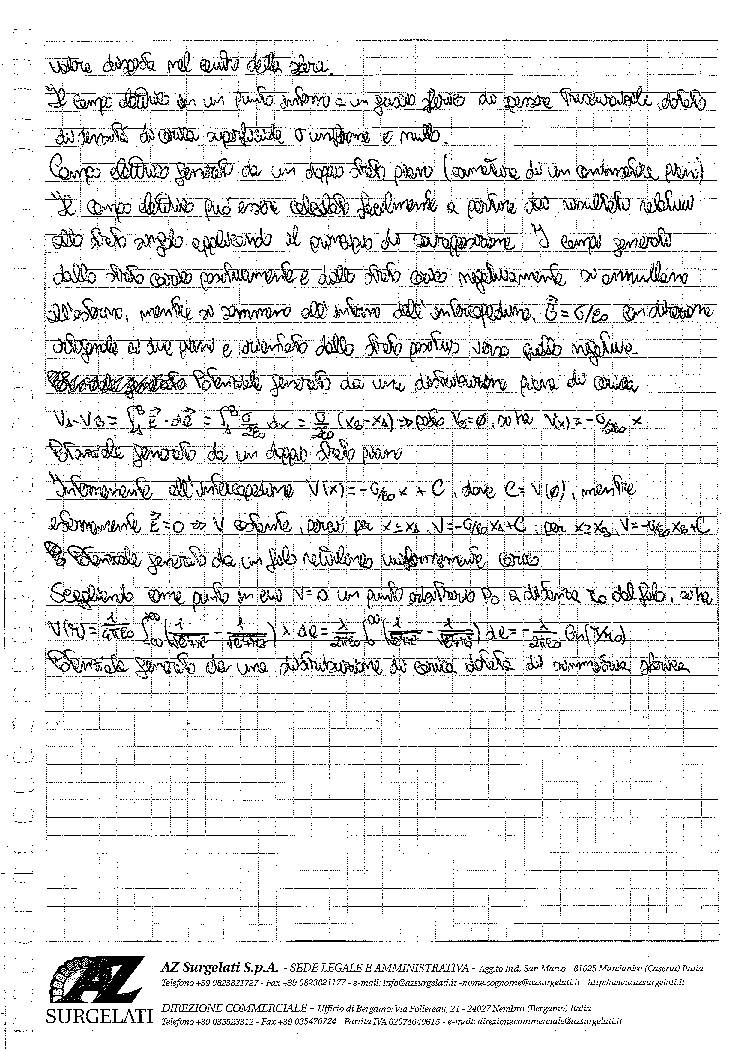 valore disposta nel centro della sfera.
Il campo elettrico in un punto interno a un guscio sferico di spessore trascurabile, dotato
di densità di carica superficiale σ uniforme è nullo.
Campo elettrico generato da un doppio strato piano (armature di un condensatore piano)
Il campo elettrico può essere calcolato facilmente a partire dai risultati relativi
allo strato singolo applicando il principio di sovrapposizione. I campi generati
dallo strato carico positivamente e dallo strato carico negativamente si annullano
all'esterno, mentre si sommano all'interno dell'intercapedine, E⃗ = σ/ε₀ con direzione
ortogonale ai due piani e orientato dallo strato positivo verso quello negativo.
Potenziale generato da una distribuzione piana di carica
V_A - V_B = ∫_A^B E⃗ · dl⃗ = ∫_A^B σ/2ε₀ dx = σ/2ε₀ (x_B - x_A) ⇒ posto V_B = 0, si ha V(x) = -σ/2ε₀ x
Potenziale generato da un doppio strato piano
Internamente all'intercapedine V(x) = -σ/ε₀ x + C, dove C = V(0), mentre
esternamente E⃗ = 0 ⇒ V costante, perciò per x ≤ x_A, V = -σ/ε₀ x_A + C; per x ≥ x_B, V = -σ/ε₀ x_B + C
Potenziale generato da un filo rettilineo uniformemente carico
Scegliendo come punto in cui V = 0 un punto arbitrario P₀ a distanza r₀ dal filo, si ha
V(r) = 1/4πε₀ ∫ ( - ) λ dl = λ/2πε₀ ∫₀^∞ ( - ) dl = -λ/2πε₀ ln(r/r₀)
Potenziale generato da una distribuzione di carica dotata di simmetria sferica
AZ Surgelati S.p.A. - SEDE LEGALE E AMMINISTRATIVA - Agg.to Ind. San Marco - 81025 Marcianise (Caserta) Italia
Telefono +39 0823821727 - Fax +39 0823021177 - e-mail: info@azsurgelati.it -nome.cognome@azsurgelati.it http://www.azsurgelati.it
AZ
SURGELATI
DIREZIONE COMMERCIALE - Ufficio di Bergamo: Via Follereau, 21 - 24027 Nembro (Bergamo) Italia
Telefono +39 035523812 - Fax +39 035470724 - Partita IVA - e-mail: direzionecommerciale@azsurgelati.it